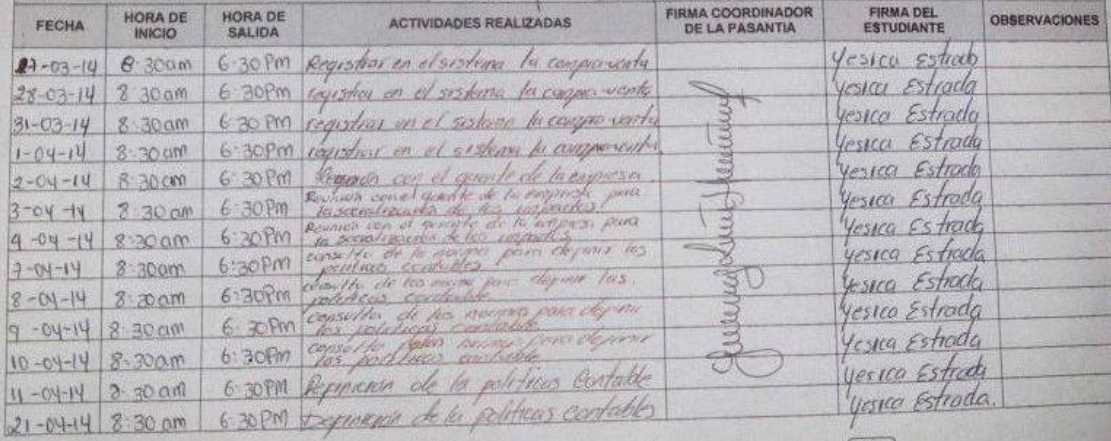 FECHA HORA DE INICIO HORA DE SALIDA ACTIVIDADES REALIZADAS FIRMA COORDINADOR DE LA PASANTIA FIRMA DEL ESTUDIANTE OBSERVACIONES
27-03-14 8:30am 6:30Pm Registrar en el sistema la compraventa Yesica Estrada
28-03-14 8:30am 6:30Pm registrar en el sistema la compra-venta Yesica Estrada
31-03-14 8:30am 6:30Pm registrar en el sistema la compra venta Yesica Estrada
1-04-14 8:30am 6:30Pm registrar en el sistema la compraventa Yesica Estrada
2-04-14 8:30am 6:30Pm Reunión con el gerente de la empresa Yesica Estrada
3-04-14 8:30am 6:30Pm Reunion con el gerente de la empresa para
la socialización de los impactos. Yesica Estrada
4-04-14 8:30am 6:30Pm Reunion con el gerente de la empresa para
la socialización de los impactos Yesica Estrada
7-04-14 8:30am 6:30Pm consulta de la normas para definir las
politicas contables Yesica Estrada
8-04-14 8:30am 6:30Pm consulta de las para definir las
politicas contable Yesica Estrada
9-04-14 8:30am 6:30Pm consultas de las normas para definir
las politicas contable Yesica Estrada
10-04-14 8:30am 6:30Pm consulta para definir
las politicas contable Yesica Estrada
11-04-14 8:30am 6:30PM Definicion de la politicas Contable Yesica Estrada
21-04-14 8:30am 6:30Pm Definición de la politicas contables Yesica Estrada.